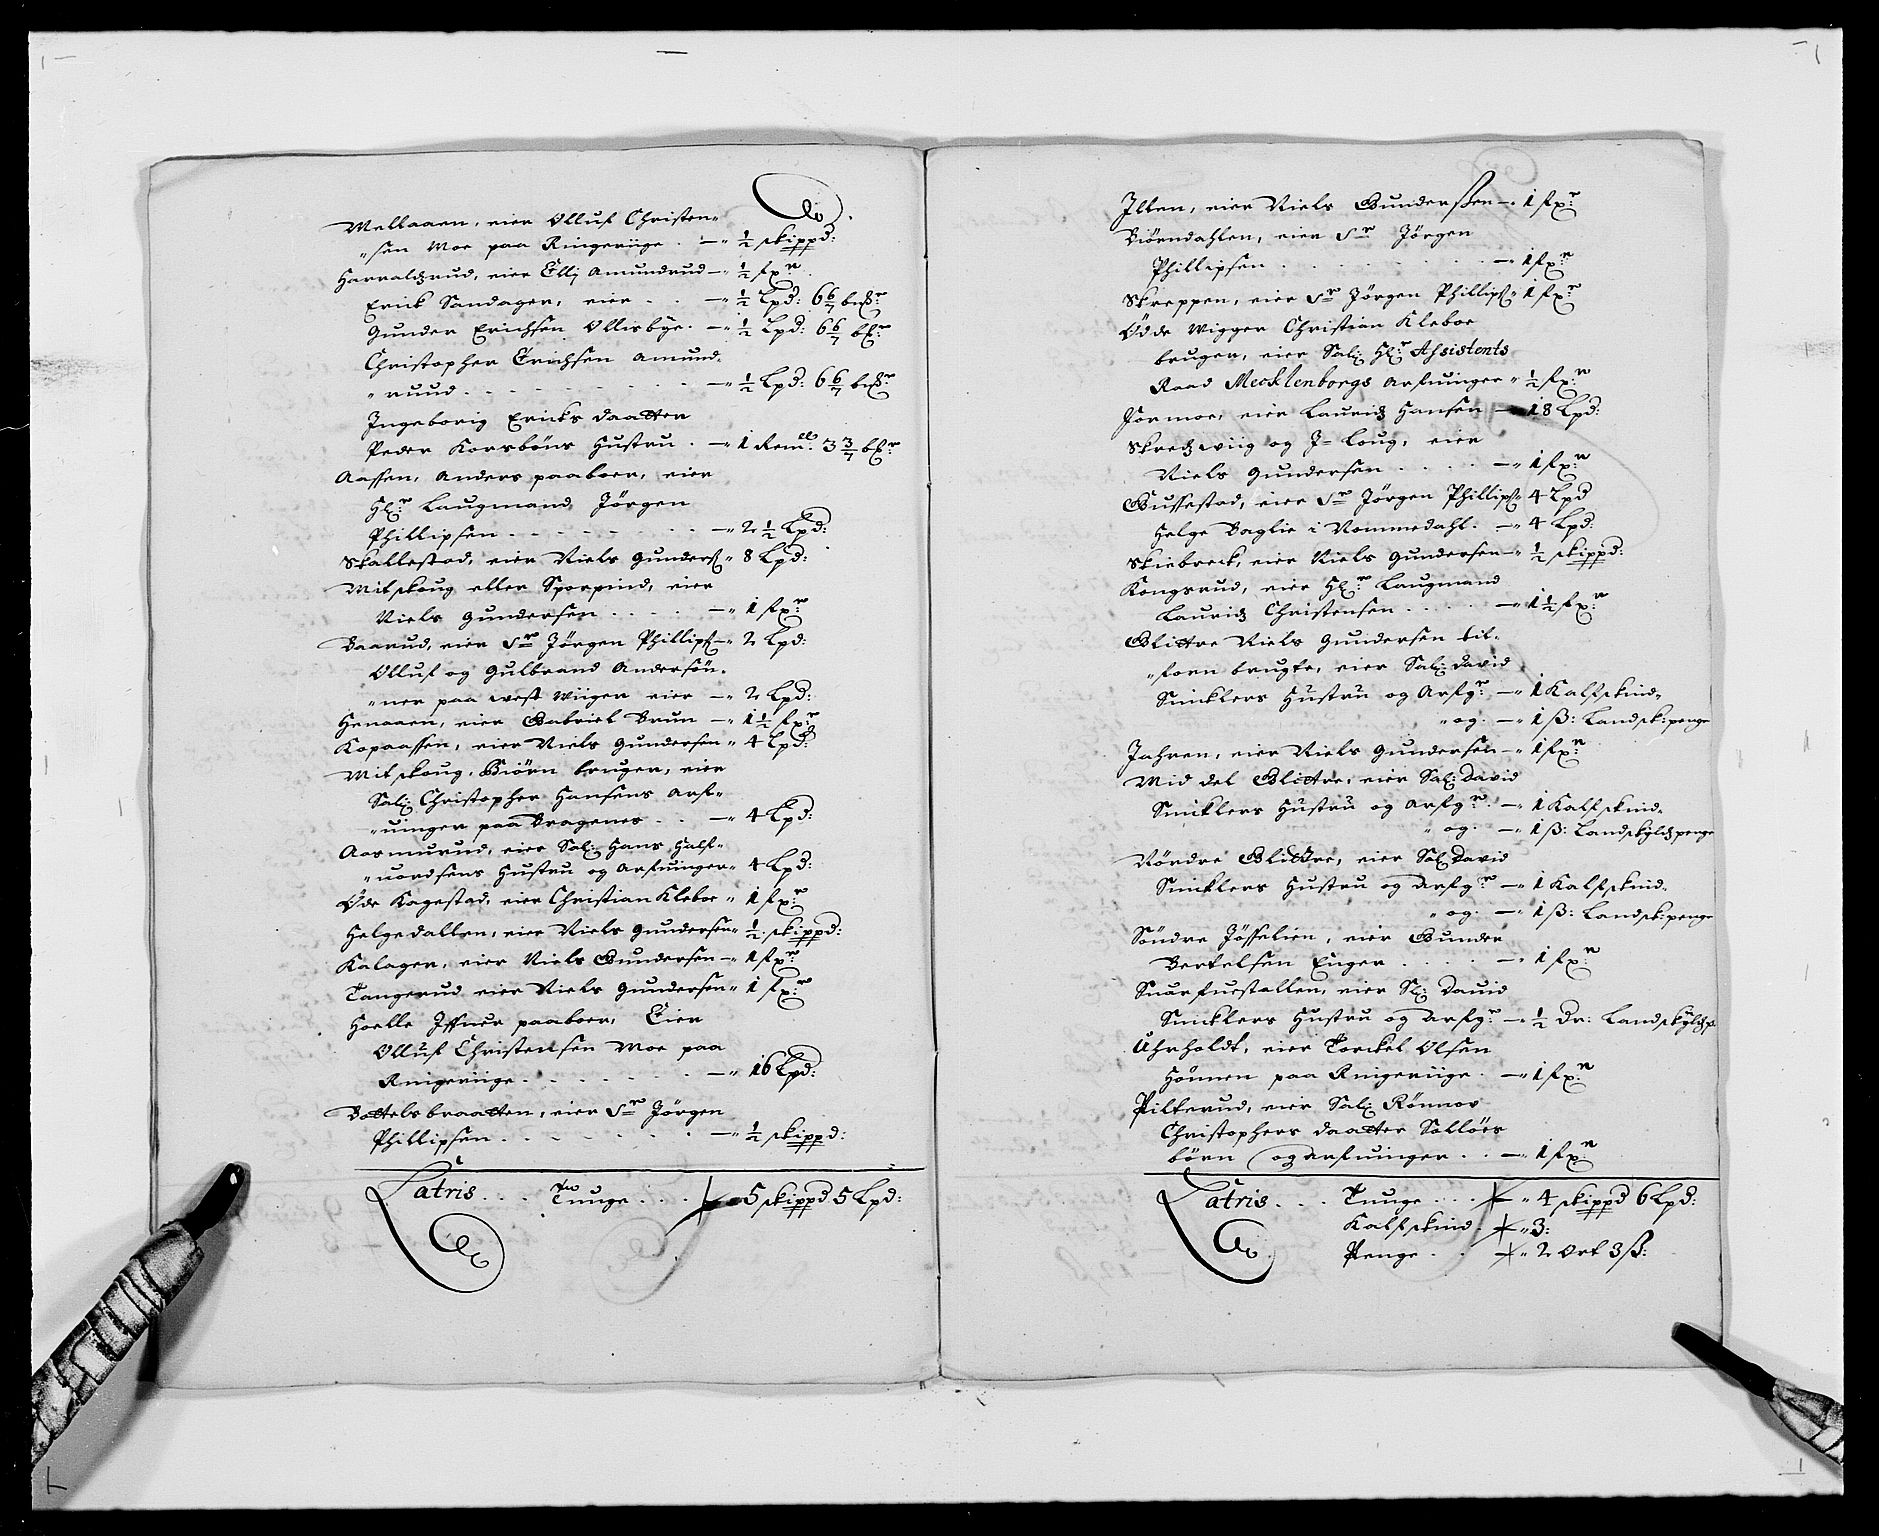 Mellaaen, eier Olluf Christen„
„sen Moe paa Ringeriige . —„ ½ skippd:
Harraldzrud, eier Ellj Amundrud —„ ½ fxr.
Erick Sandager, eier . . —„ ½ Lpd: 6 6/7 bßr
Gunder Erichsen Ollisbye. —„ ½ Lpd: 6 6/7 bßr
Christopher Erichsen Amund„
„ruud . . . —„ ½ Lpd: 6 6/7 bßr
Ingeborig Ericks daatter
Peder Korsbøns Hustru . —„ 1 Reml: 3 3/7 bßr
Aassen, Anders paaboer, eier
Hr: Laugmand Jørgen
Phillipsen . . . —„ 2 ½ Lpd:
Skallestad, eier Niels Gunders: „ 8 Lpd:
Mitskoug eller Sporpind, eier
Niels Gundersen . . . —„ 1 fxr
Baarud, eier Sr Jørgen Phillips: —„ 2 Lpd:
Olluf og Gulbrand Andersøn„
„ner paa west Wiiger eier —„ 2 Lpd:
Henaaen, eier Gabriel Brun —„ 1 ½ fxr
Kopaassen, eier Niels Gundersen „ 4 Lpd:
Mitskoug, Biørn bruger, eier
Sal: Christopher Hansens arf„
„uinger paa Bragenes . . —„ 4 Lpd:
Aasmurud, eier Sal: Hans Half„
„uordsens Hustru og Arfuinger „ 4 Lpd:
Øde Kagestad, eier Christian Kleboe „ 1 fxr
Helgedallen, eier Niels Gundersen „ ½ skippd:
Kalager, eier Niels Gundersen —„ 1 fxr
Tangerud eier Niels Gundersen „ 1 fxr
Hoelle Iffuer paaboer, Eier
Olluf Christensen Moe paa
Ringeriige . . . —„ 16 Lpd:
Bottelsbraatten, eier Sr Jørgen
Phillipsen . . . —„ ½ skippd:
Latris . . . Tunge . . . 5 skippd 5 Lpd:
Illen, eier Niels Gunderssen —„ 1 fxr
Biørndahlen, eier Sr Jørgen
Phillipsen . . . —„ 1 fxr
Skreppen, eier Sr Jørgen Phillips: „ 1 fxr
Ødde Wigger Christian Kleboe
bruger, eier Sal: Hr: Assistents
Raad Mecklenborgs Arfuinger „ ½ fxr
Formoe, eier Lauridz Hansen — 18 Lpd:
Skredzwiig og I=Loug, eier
Niels Gundersen . . . —„ 1 fxr
Gussestad, eier Sr Jørgen Phillips: „ 4 Lpd
Helge Baglie i Nommedahl. —„ 4 Lpd:
Skiebreck, eier Niels Gundersen —„ ½ skippd:
Kongsrud, eier Hr: Laugmand
Lauridz Christensen . . . —„ 1 ½ fxr
Glittre Niels Gundersen til„
„forn brugte, eier Sal: David
Sinklers Hustru og Arfgr: —„ 1 Kalfskind„
„ og. —„ 1 ß: Landsk: penge
Jahren, eier Niels Gundersen —„ 1 fxr
Mid del Glittre, eier Sal: David
Sinklers Hustru og Arfgr. —„ 1 Kalfskind„
„ og. —„ 1 ß: Landskyldz penge
Nørdre Glittre, eier Sal: David
Sinklers Hustru og Arfgr —„ 1 Kalfskind„
„ og. —„ 1 ß: Landsk: penge
Søndre Jøsselien, eier Gunder
Bertelsen Enger . . . —„ 1 fxr
Snarfuestallen, eier Sl: Dauid
Sinklers Hustru og Arfgr —„ ½ Dr: Landskyldzp
Uhrholdt, eier Torckel Olsen
Hønnen paa Ringeriige . —„ 1 fxr
Pilterud, eier Sal: Rønnov
Christophers daatter Solløes
børn og arfuinger . . —„ 1 fxr
Latris . . . Tunge . . . „ 4 skippd 6 Lpd:
Kalfskind . „ 3:
Penge . . „ 2 Ort 3 ß: